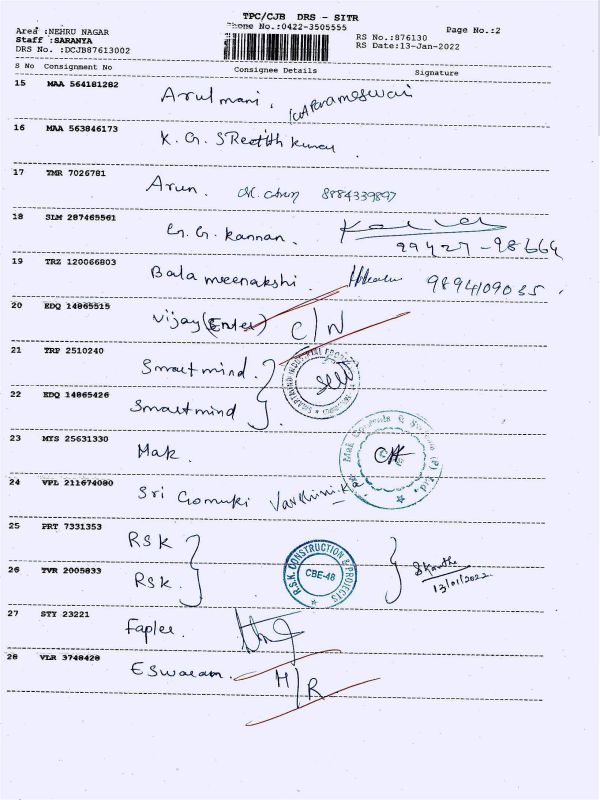 TPC/CJB DRS - SITR
Area :NEHRU NAGAR
Phone No.:0422-3505555
Page No.:2
Staff :SARANYA
RS No.:876130
DRS No. :DCJB87613002
RS Date:13-Jan-2022
S No Consignment No Consignee Details Signature
15 MAA 564181282 Arulmani.
16 MAA 563846173 K. G. SReejith kumar
17 TMR 7026781 Arun. 8884339897
18 SLM 287465561 G. G. Kannan. 99427-98664
19 TRZ 120066803 Bala meenakshi. 9894109035
20 EDQ 14865515 Vijay (Enter) C/N
21 TRP 2510240 Smartmind.
22 EDQ 14865426 Smartmind
23 MYS 25631330 Mak.
24 VPL 211674080 Sri Gomuki
25 PRT 7331353 RSK
R.S.K. CONSTRUCTION & PROJECTS
CBE-48
13/01/2022
26 TVR 2005833 RSK
27 STY 23221 Faplee.
28 VLR 3748428 Eswaran. H/R